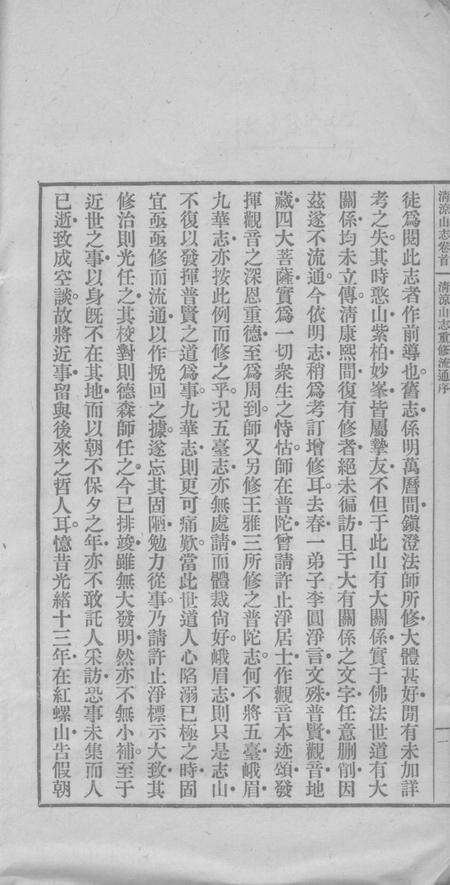 清涼山志卷首 清涼山志重修流通序 一
徒爲閱此志者作前導也。舊志係明萬曆間鎭澄法師所修大體甚好閒有未加詳
考之失。其時憨山紫柏妙峯皆屬摯友不但于此山有大關係實于佛法世道有大
關係均未立傳。淸康熙間復有修者絕未徧訪且于大有關係之文字任意删削因
茲遂不流通。今依明志稍爲考訂增修耳。去春一弟子李圓淨言文殊普賢觀音地
藏四大菩薩實爲一切衆生之恃怙師在普陀曾請許止淨居士作觀音本迹頌發
揮觀音之深恩重德至爲周到。師又另修王雅三所修之普陀志。何不將五臺峨眉
九華志亦按此例而修之乎。况五臺志亦無處請而體裁尙好。峨眉志則只是志山
不復以發揮普賢之道爲事。九華志則更可痛歎。當此世道人心陷溺已極之時固
宜亟亟修而流通以作挽回之據。遂忘其固陋勉力從事。乃請許止淨標示大致其
修治則光任之其校對則德森師任之。今已排竣雖無大發明然亦不無小補至于
近世之事以身旣不在其地而以朝不保夕之年亦不敢託人采訪恐事未集而人
已逝致成空談。故將近事留與後來之哲人耳。憶昔光緖十三年在紅螺山告假朝